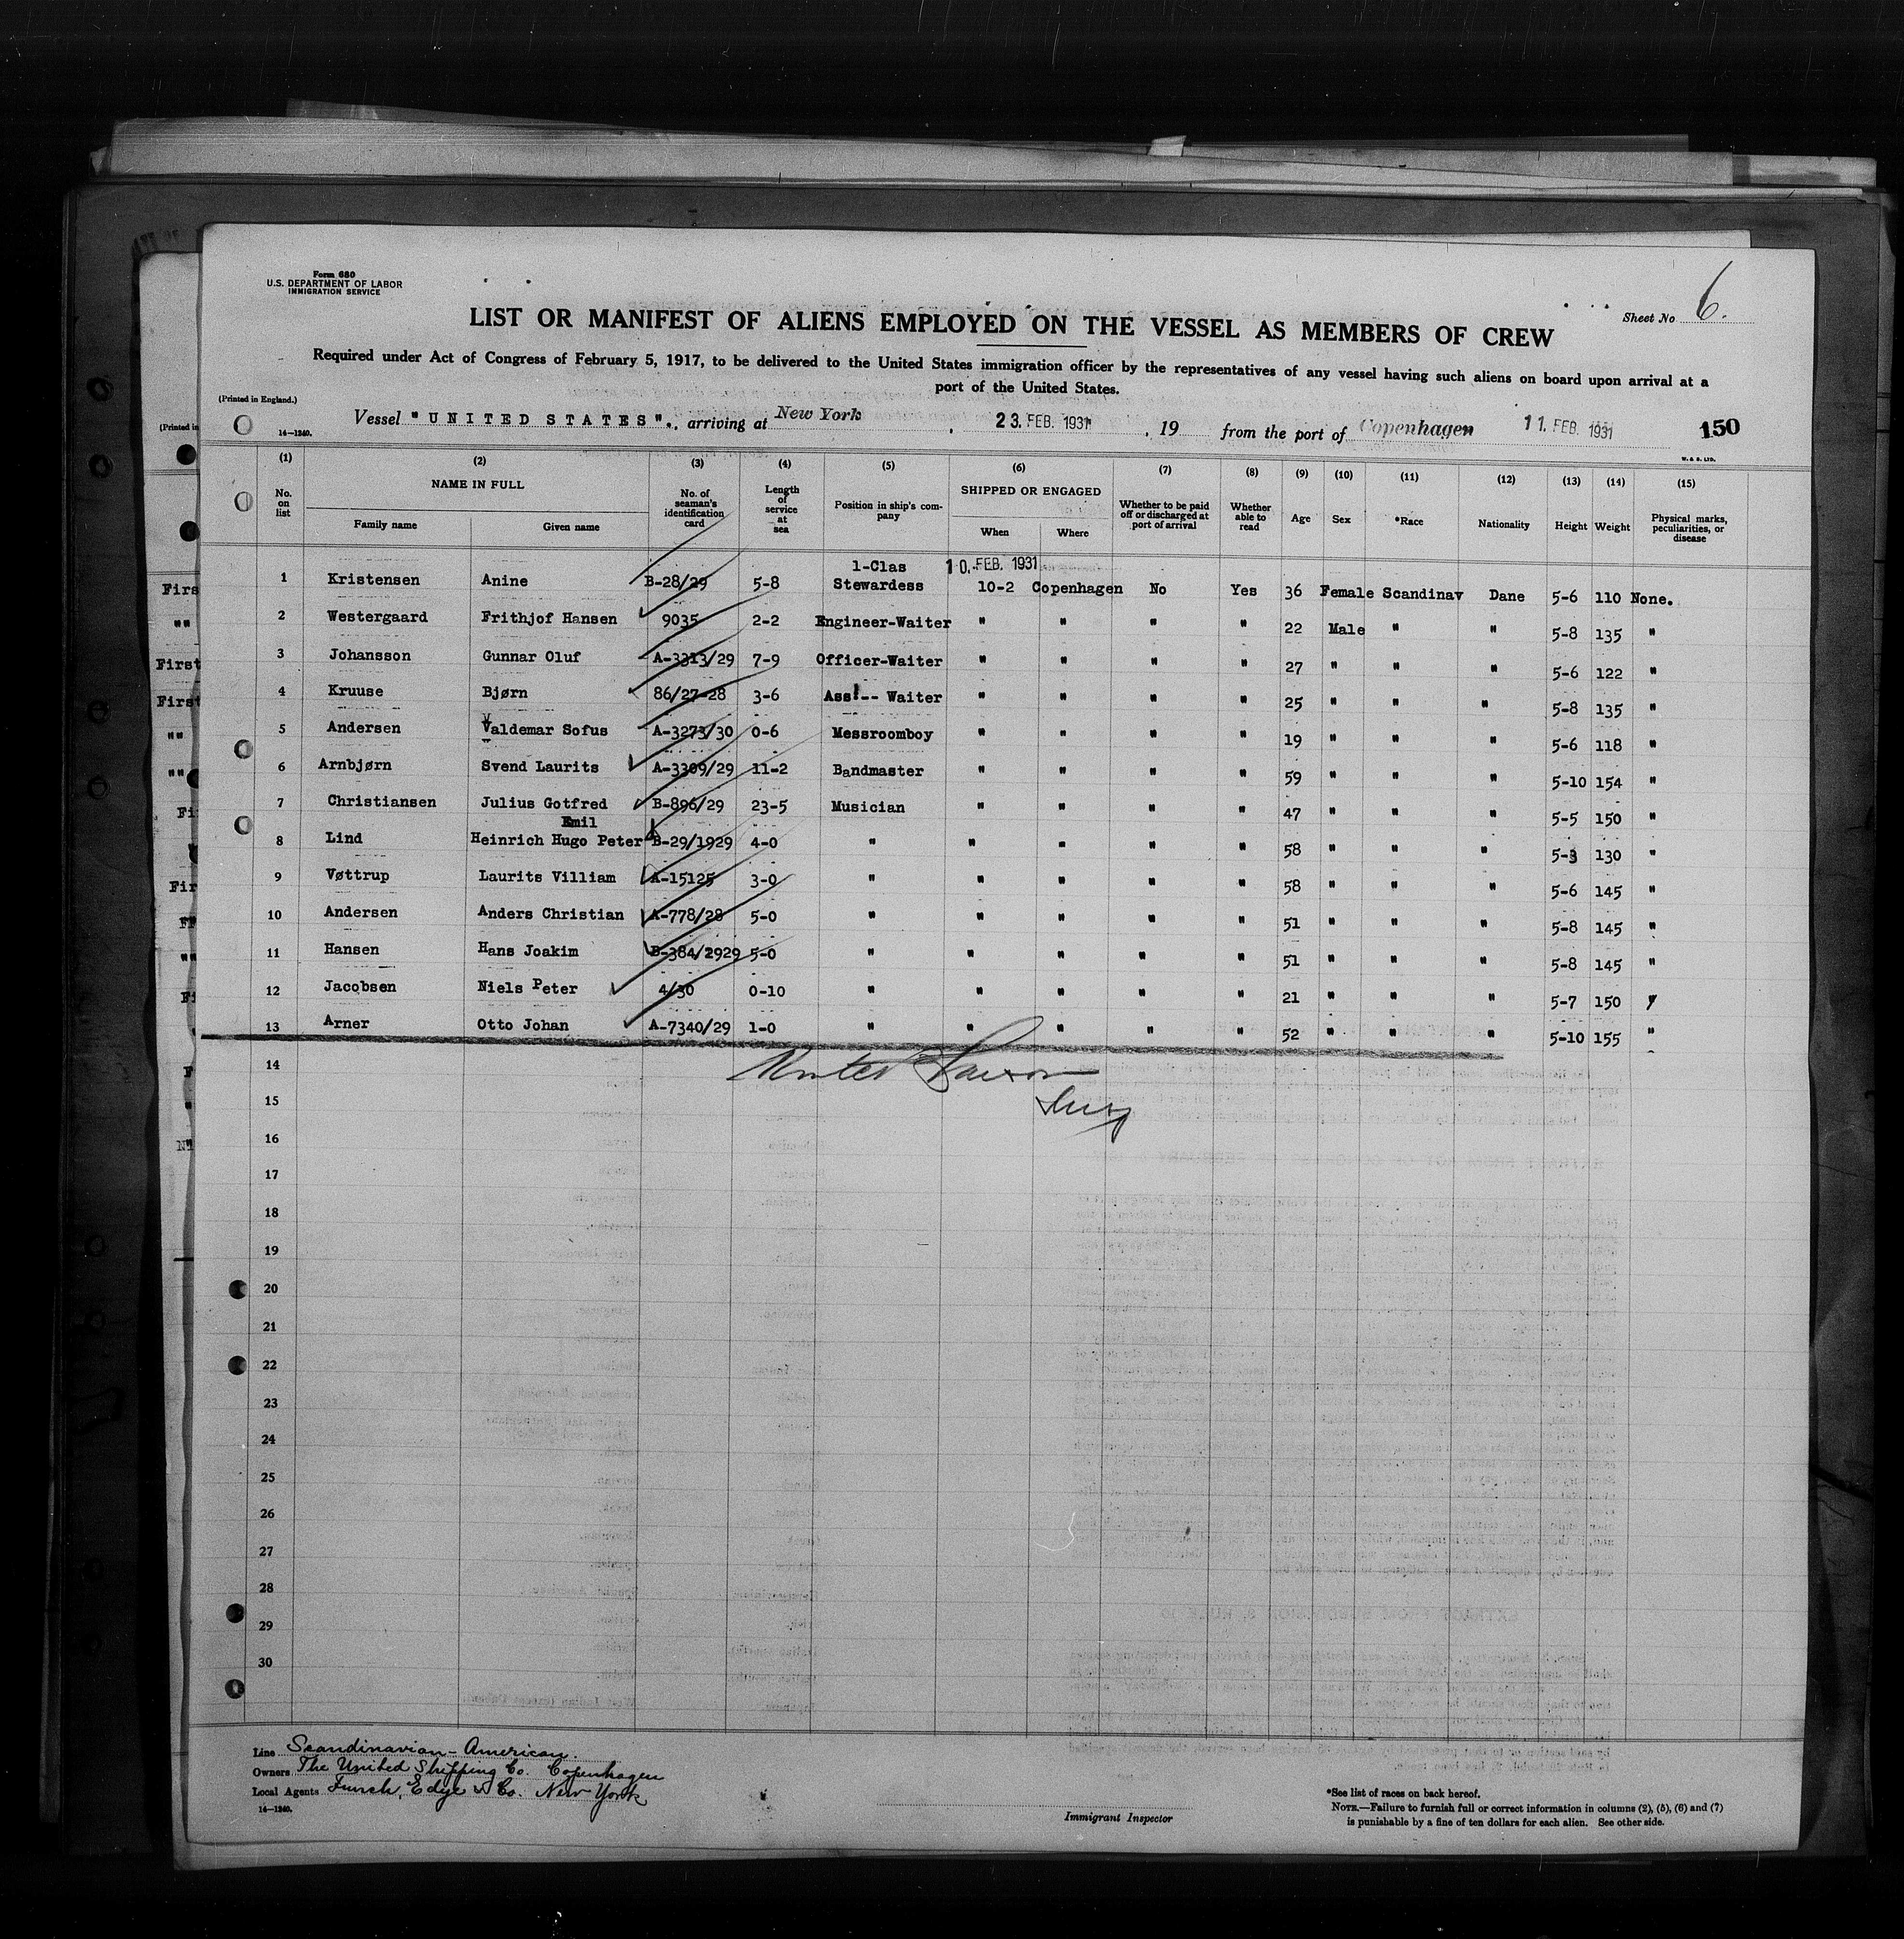 Form 680
U.S. DEPARTMENT OF LABOR
IMMIGRATION SERVICE
Sheet No 6.
LIST OR MANIFEST OF ALIENS EMPLOYED ON THE VESSEL AS MEMBERS OF CREW
Required under Act of Congress of February 5, 1917, to be delivered to the United States immigration officer by the representatives of any vessel having such aliens on board upon arrival at a
port of the United States.
(Printed in England.)
Vessel "UNITED STATES"., arriving at New York, 23. FEB. 1931, 19 from the port of Copenhagen 11. FEB. 1931 150
14—1240.
W. & S. LTD.
(1) (2) (3) (4) (5) (6) (7) (8) (9) (10) (11) (12) (13) (14) (15)
No. on list NAME IN FULL Family name Given name No. of seaman's identification card Length of service at sea Position in ship's company SHIPPED OR ENGAGED When Where Whether to be paid off or discharged at port of arrival Whether able to read Age Sex *Race Nationality Height Weight Physical marks, peculiarities, or disease
1-Clas 10. FEB. 1931
1 Kristensen Anine B-28/29 5-8 Stewardess 10-2 Copenhagen No Yes 36 Female Scandinav Dane 5-6 110 None.
2 Westergaard Frithjof Hansen 9035 2-2 Engineer-Waiter " " " " 22 Male " " 5-8 135 "
3 Johansson Gunnar Oluf A-3313/29 7-9 Officer-Waiter " " " " 27 " " " 5-6 122 "
4 Kruuse Bjørn 86/27-28 3-6 Ass!-- Waiter " " " " 25 " " " 5-8 135 "
5 Andersen Valdemar Sofus A-3273/30 0-6 Messroomboy " " " " 19 " " " 5-6 118 "
6 Arnbjørn Svend Laurits A-3309/29 11-2 Bandmaster " " " " 59 " " " 5-10 154 "
7 Christiansen Julius Gotfred B-896/29 23-5 Musician " " " " 47 " " " 5-5 150 "
Emil
8 Lind Heinrich Hugo Peter B-29/1929 4-0 " " " " " 58 " " " 5-3 130 "
9 Vøttrup Laurits Villiam A-15125 3-0 " " " " " 58 " " " 5-6 145 "
10 Andersen Anders Christian A-778/28 5-0 " " " " " 51 " " " 5-8 145 "
11 Hansen Hans Joakim B-384/2929 5-0 " " " " " 51 " " " 5-8 145 "
12 Jacobsen Niels Peter 4/30 0-10 " " " " " 21 " " " 5-7 150 "
13 Arner Otto Johan A-7340/29 1-0 " " " " " 52 " " " 5-10 155 "
14
15
16
17
18
19
20
21
22
23
24
25
26
27
28
29
30
Line Scandinavian-American.
Owners The United Shipping Co. Copenhagen
Local Agents Funch, Edye & Co. New York
14—1240.
Immigrant Inspector
*See list of races on back hereof.
NOTE.—Failure to furnish full or correct information in columns (2), (5), (6) and (7)
is punishable by a fine of ten dollars for each alien. See other side.